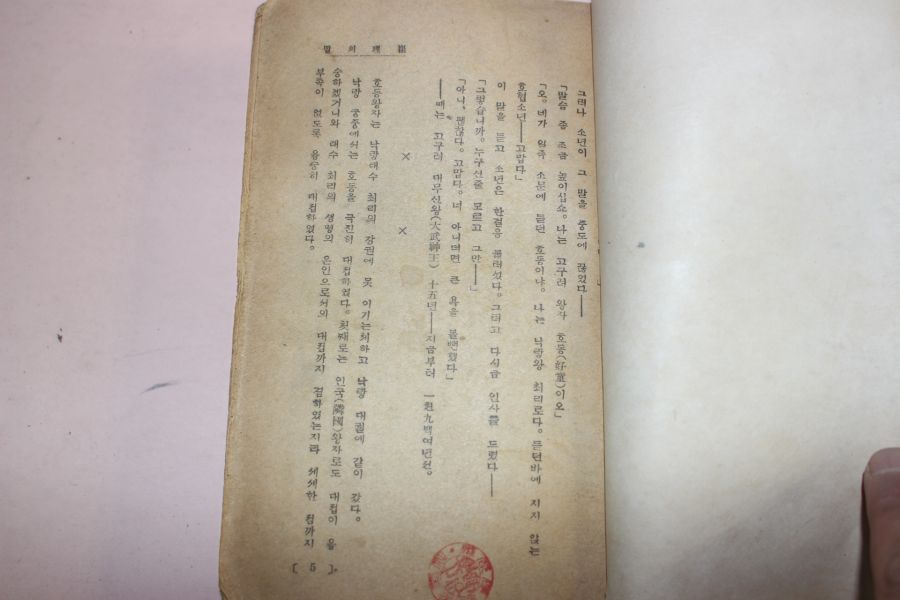 그러나 소년이 그 말을 중도에 끊었다──
「말슴 좀 조곰 높이십쇼。나는 고구려 왕자 호동(好童)이오」
「오。네가 일즉 소문에 듣던 호동이냐。나는 낙랑왕 최리로다。듣던바에 지지 않는
호협소년──고맙다」
이 말을 듣고 소년은 한걸음 물러섰다。그리고 다시금 인사를 드렸다──
「그렇습니까。누구신줄 모르고 그만──」
「아니、괜찮다。고맙다。너 아니더면 큰 욕을 볼뻔했다」
──때는 고구려 대무신왕(大武神王) 十五년──지금부터 一千九백여년전。
× ×
호동왕자는 낙랑태수 최리의 강권에 못 이기는체하고 낙랑 대궐에 같이 갔다。
낙랑 궁중에서는 호동을 극진히 대접하였다。첫째로는 인국(隣國)왕자로도 대접이 융
숭하겠거니와 태수 최리의 생명의 은인으로서의 대접까지 겸하였는지라 세세한 점까지
부족이 없도록 융숭히 대접하였다。
崔理의 딸
[5]